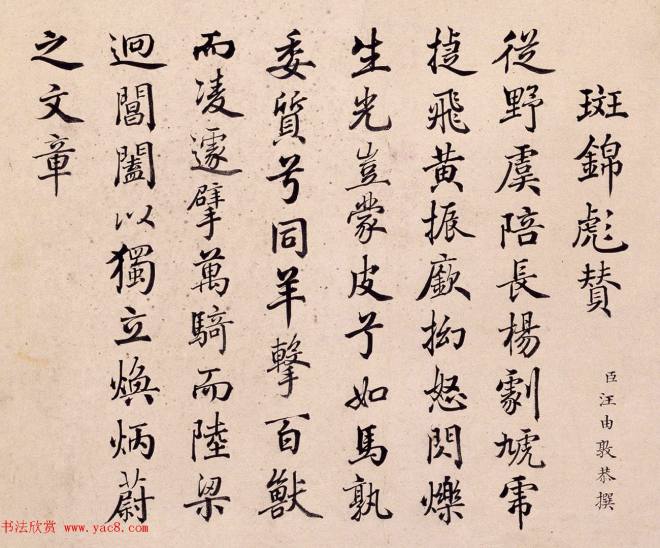 斑錦彪贊
臣汪由敦恭撰
從野虞陪長楊劇虓虎
捷飛黃振厥拗怒閃爍
生光豈蒙皮兮如馬孰
委質兮同羊擊百獸
而凌遽擘萬騎而陸梁
逈閶闔以獨立煥炳蔚
之文章
书法欣赏 www.yac8.com